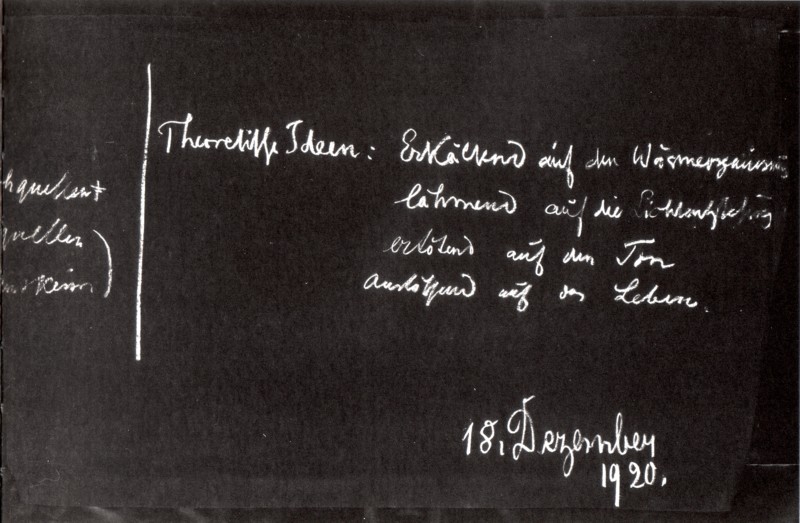 Theoretische Ideen: Erkältend auf den Wärmeorganismus
quellen
lähmend auf die Lichtentstehung
quellen
ertötend auf den Ton
auslöschend auf das Leben.
18. Dezember
1920.